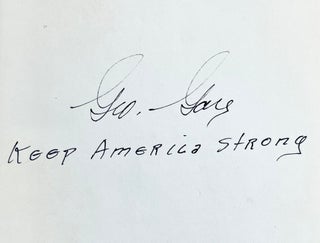 Geo. Gay
KEEP AMERICA STRONG